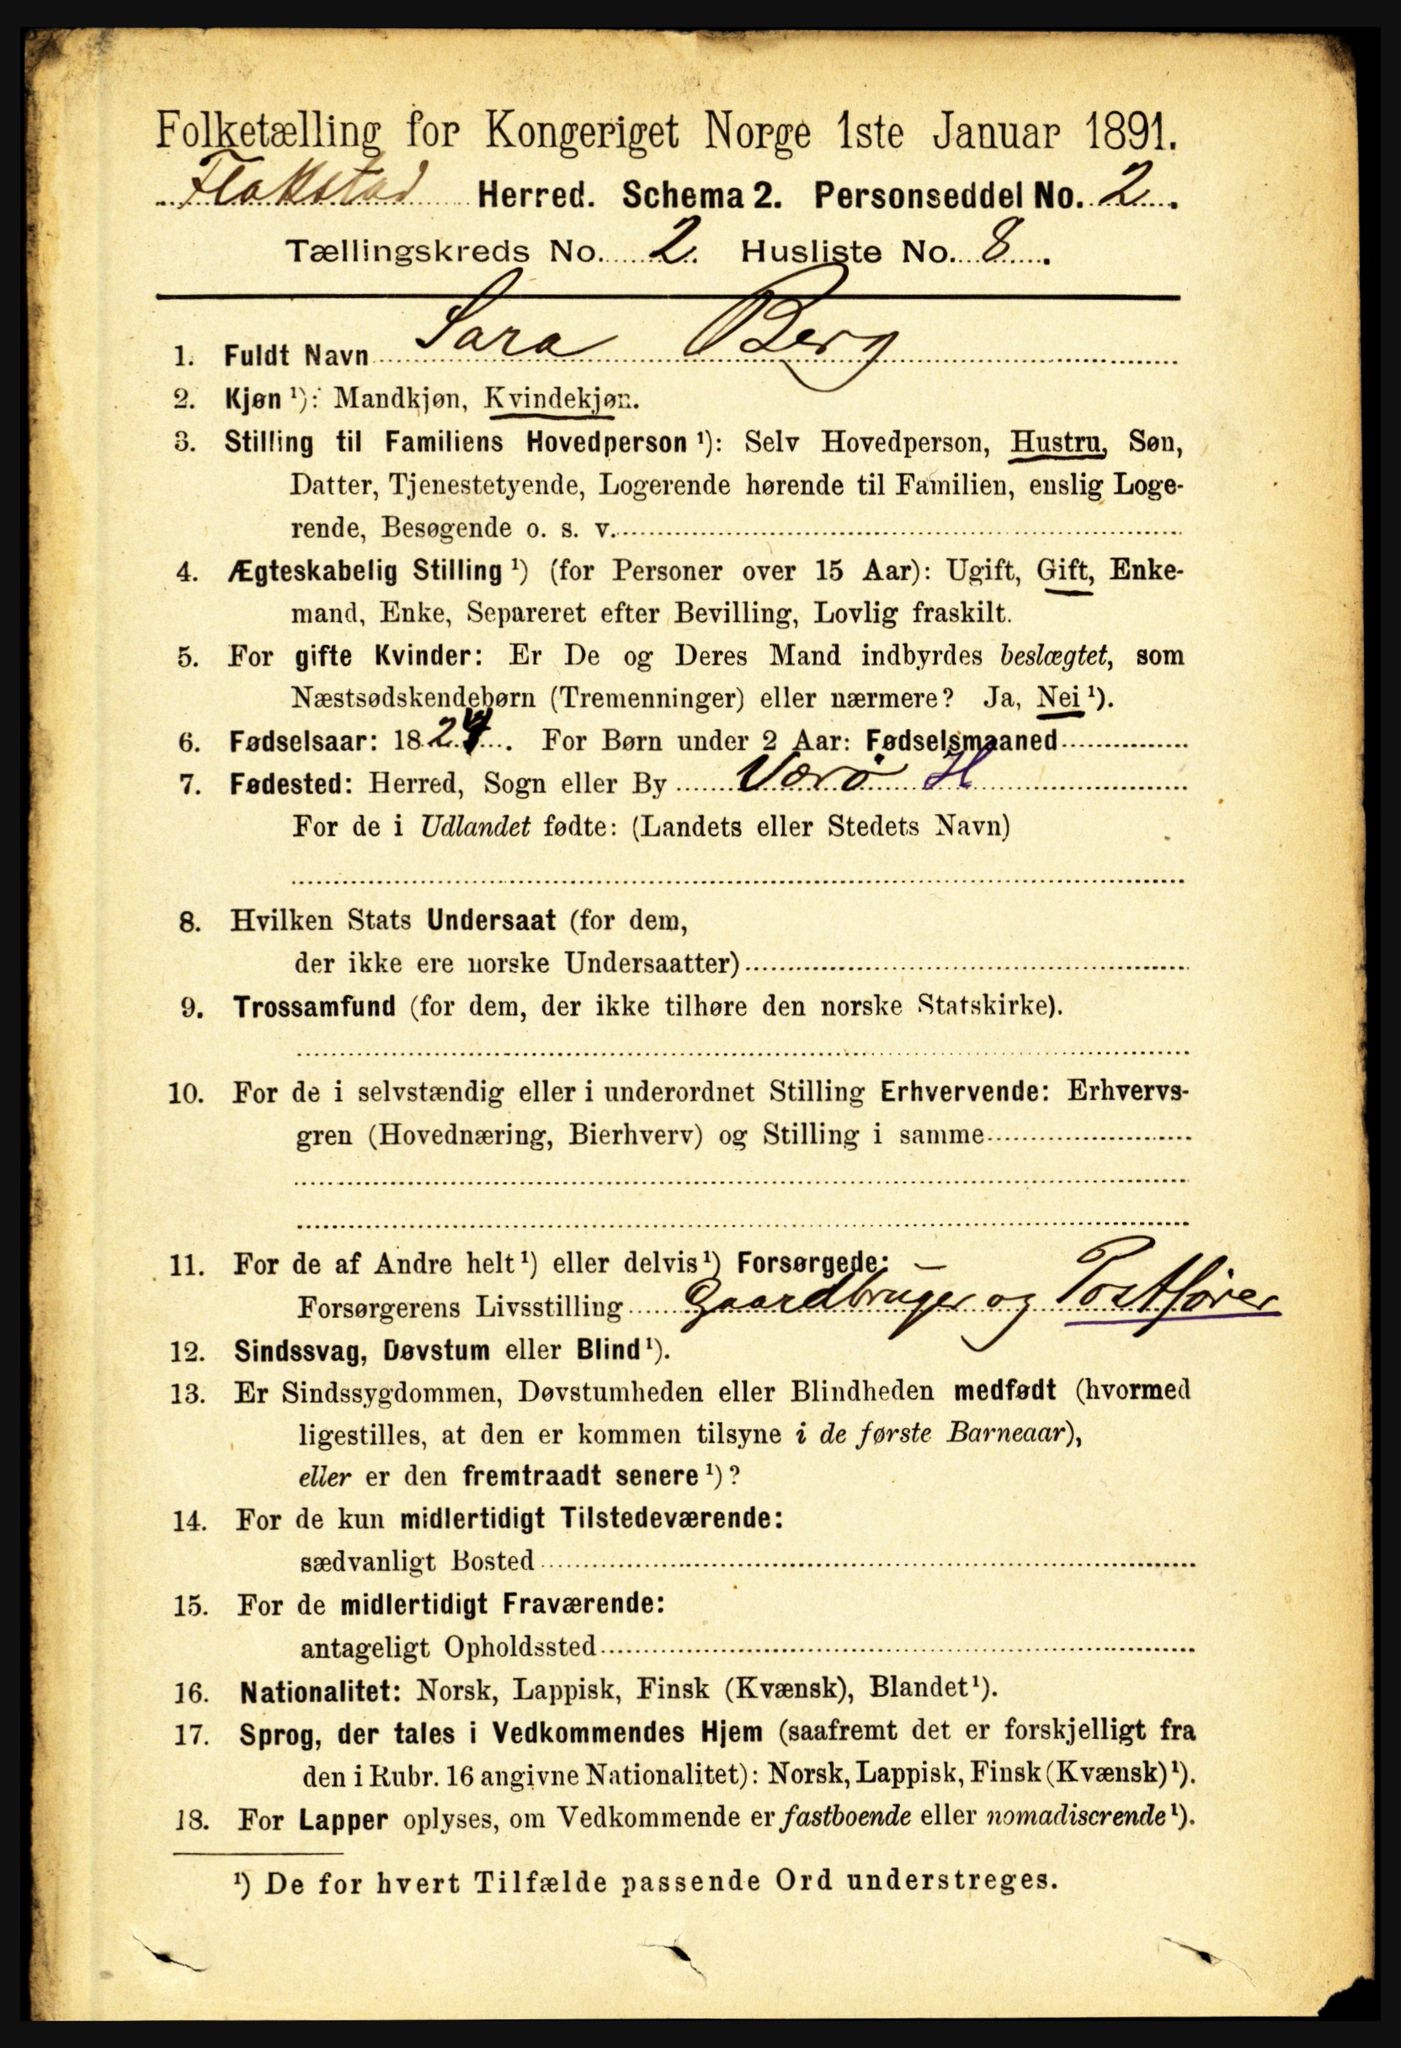 Folketælling for Kongeriget Norge 1ste Januar 1891.
Flakstad Herred. Schema 2. Personseddel No. 2.
Tællingskreds No. 2. Husliste No. 8.
1. Fuldt Navn Sara Berg
2. Kjøn ¹): Mandkjøn, Kvindekjøn.
3. Stilling til Familiens Hovedperson ¹): Selv Hovedperson, Hustru, Søn,
Datter, Tjenestetyende, Logerende hørende til Familien, enslig Loge-
rende, Besøgende o. s. v.
4. Ægteskabelig Stilling ¹) (for Personer over 15 Aar): Ugift, Gift, Enke-
mand, Enke, Separeret efter Bevilling, Lovlig fraskilt.
5. For gifte Kvinder: Er De og Deres Mand indbyrdes beslægtet, som
Næstsødskendebørn (Tremenninger) eller nærmere? Ja, Nei ¹).
6. Fødselsaar: 1824. For Børn under 2 Aar: Fødselsmaaned
7. Fødested: Herred, Sogn eller By Værö H
For de i Udlandet fødte: (Landets eller Stedets Navn)
8. Hvilken Stats Undersaat (for dem,
der ikke ere norske Undersaatter)
9. Trossamfund (for dem, der ikke tilhøre den norske Statskirke).
10. For de i selvstændig eller i underordnet Stilling Erhvervende: Erhvervs-
gren (Hovednæring, Bierhverv) og Stilling i samme
11. For de af Andre helt ¹) eller delvis ¹) Forsørgede:
Forsørgerens Livsstilling Gaardbruger og Postfører
12. Sindssvag, Døvstum eller Blind ¹).
13. Er Sindssygdommen, Døvstumheden eller Blindheden medfødt (hvormed
ligestilles, at den er kommen tilsyne i de første Barneaar),
eller er den fremtraadt senere ¹)?
14. For de kun midlertidigt Tilstedeværende:
sædvanligt Bosted
15. For de midlertidigt Fraværende:
antageligt Opholdssted
16. Nationalitet: Norsk, Lappisk, Finsk (Kvænsk), Blandet ¹).
17. Sprog, der tales i Vedkommendes Hjem (saafremt det er forskjelligt fra
den i Rubr. 16 angivne Nationalitet): Norsk, Lappisk, Finsk (Kvænsk) ¹).
18. For Lapper oplyses, om Vedkommende er fastboende eller nomadiserende ¹).
¹) De for hvert Tilfælde passende Ord understreges.